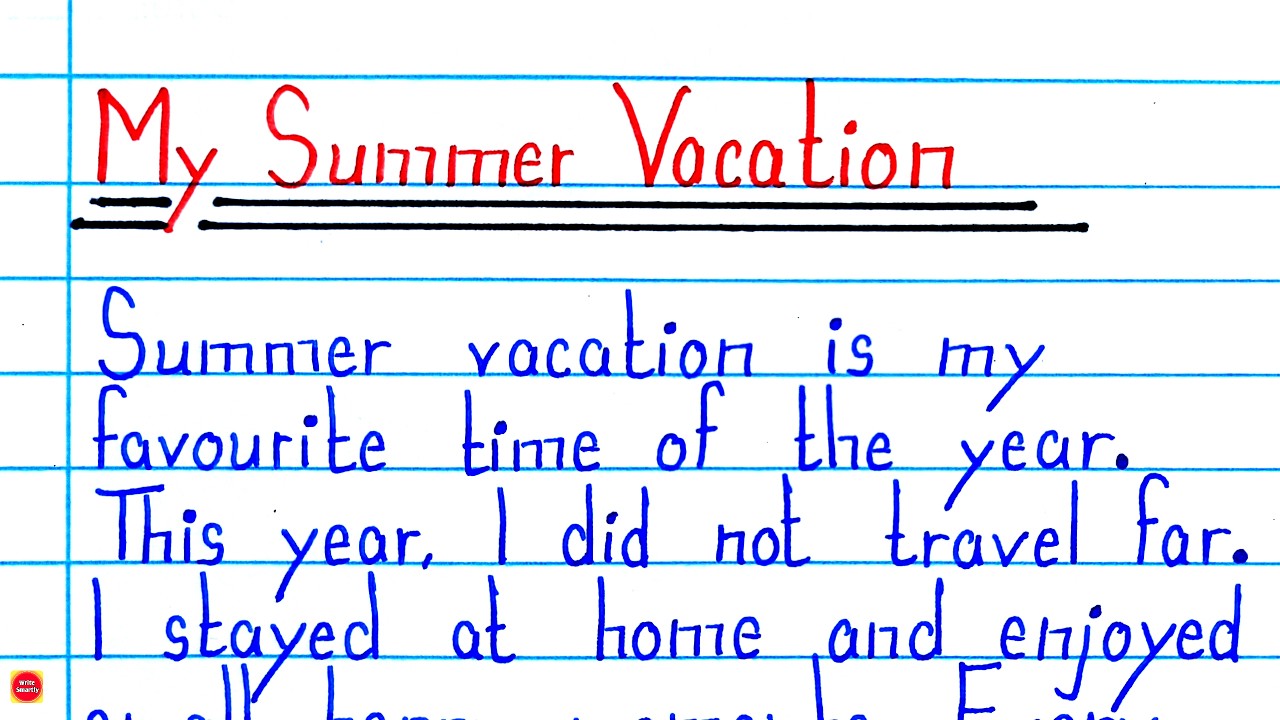 My Summer Vacation
Summer vacation is my
favourite time of the year.
This year, I did not travel far.
I stayed at home and enjoyed
Write
Smartly